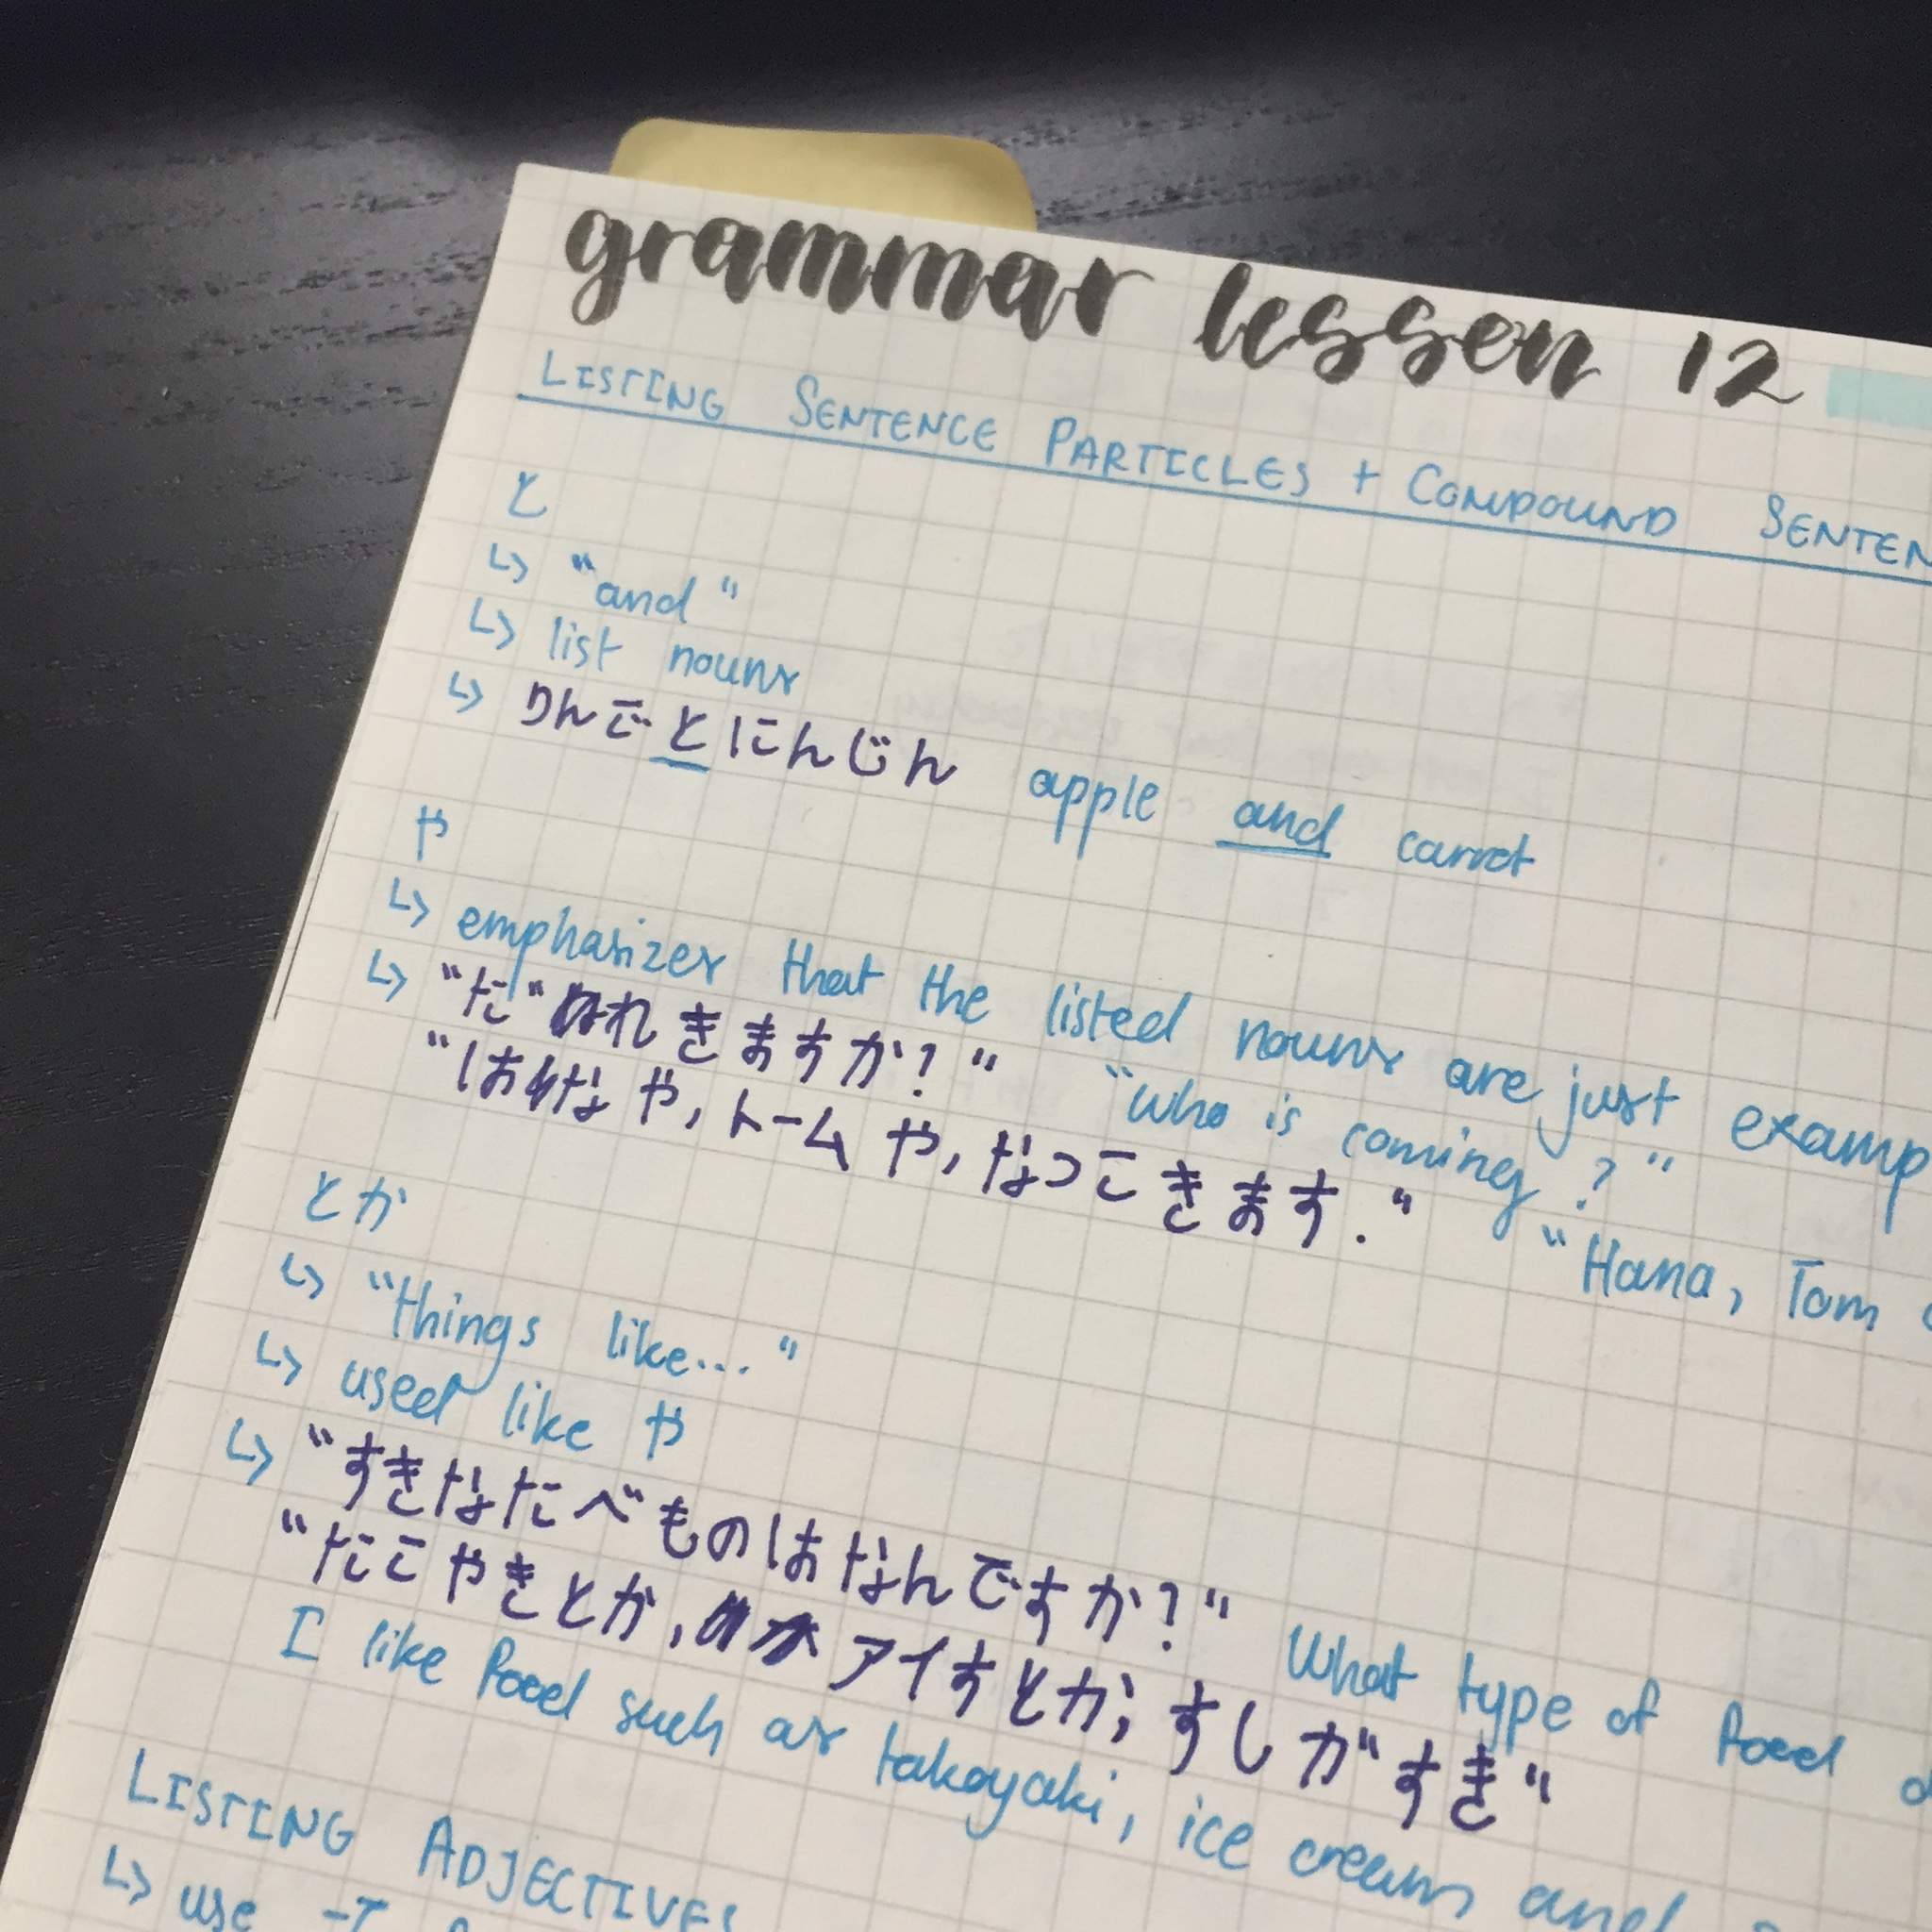 grammar lesson 12
LISTING SENTENCE PARTICLES + COMPOUND SENTEN
と
↳ "and"
↳ list nouns
↳ りんごとにんじん apple and carrot
や
↳ emphasizes that the listed nouns are just examp
↳ "だ"れきますか?" "Who is coming?"
"はなや, トームや, なつこきます." "Hana, Tom
とか
↳ "things like..."
↳ used like や
↳ "すきなたべものはなんですか?" What type of food
"たこやきとか, アイすとか, すしがすき"
I like food such as takoyaki, ice cream and
LISTING ADJECTIVES
↳ use